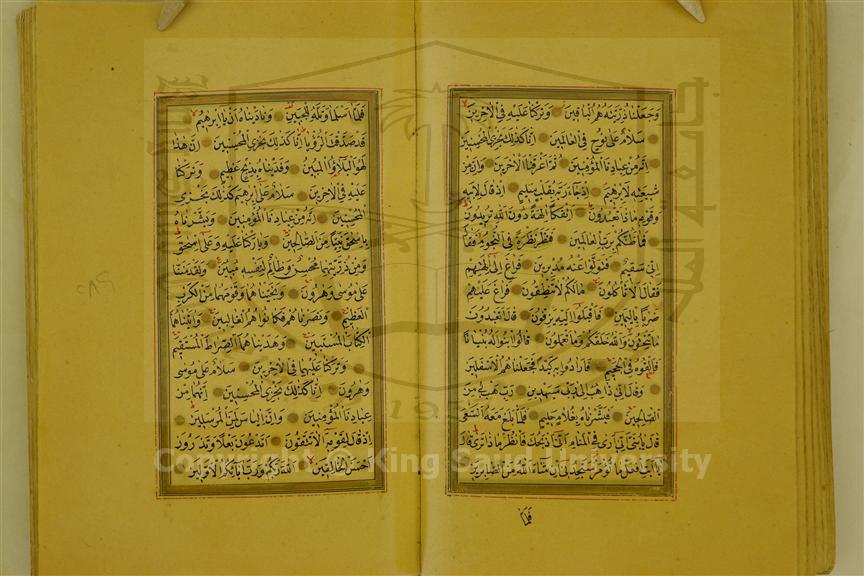 وَجَعَلْنَا ذُرِّيَّتَهُ هُمُ الْبَاقِينَ وَتَرَكْنَا عَلَيْهِ فِي الْآخِرِينَ
سَلَامٌ عَلَى نُوحٍ فِي الْعَالَمِينَ إِنَّا كَذَلِكَ نَجْزِي الْمُحْسِنِينَ
إِنَّهُ مِنْ عِبَادِنَا الْمُؤْمِنِينَ ثُمَّ أَغْرَقْنَا الْآخَرِينَ وَإِنَّ مِنْ
شِيعَتِهِ لَإِبْرَهِيمَ إِذْ جَاءَ رَبَّهُ بِقَلْبٍ سَلِيمٍ إِذْ قَالَ لِأَبِيهِ
وَقَوْمِهِ مَاذَا تَعْبُدُونَ أَئِفْكًا آلِهَةً دُونَ اللَّهِ تُرِيدُونَ
فَمَا ظَنُّكُمْ بِرَبِّ الْعَالَمِينَ فَنَظَرَ نَظْرَةً فِي النُّجُومِ فَقَالَ
إِنِّي سَقِيمٌ فَتَوَلَّوْا عَنْهُ مُدْبِرِينَ فَرَاغَ إِلَى آلِهَتِهِمْ
فَقَالَ أَلَا تَأْكُلُونَ مَا لَكُمْ لَا تَنْطِقُونَ فَرَاغَ عَلَيْهِمْ
ضَرْبًا بِالْيَمِينِ فَأَقْبَلُوا إِلَيْهِ يَزِفُّونَ قَالَ أَتَعْبُدُونَ
مَا تَنْحِتُونَ وَاللَّهُ خَلَقَكُمْ وَمَا تَعْمَلُونَ قَالُوا ابْنُوا لَهُ بُنْيَانًا
فَأَلْقُوهُ فِي الْجَحِيمِ فَأَرَادُوا بِهِ كَيْدًا فَجَعَلْنَاهُمُ الْأَسْفَلِينَ
وَقَالَ إِنِّي ذَاهِبٌ إِلَى رَبِّي سَيَهْدِينِ رَبِّ هَبْ لِي مِنَ
الصَّالِحِينَ فَبَشَّرْنَاهُ بِغُلَامٍ حَلِيمٍ فَلَمَّا بَلَغَ مَعَهُ السَّعْيَ
قَالَ يَا بُنَيَّ إِنِّي أَرَى فِي الْمَنَامِ أَنِّي أَذْبَحُكَ فَانْظُرْ مَاذَا تَرَى قَالَ
يَا أَبَتِ افْعَلْ مَا تُؤْمَرُ سَتَجِدُنِي إِنْ شَاءَ اللَّهُ مِنَ الصَّابِرِينَ
فَلَمَّا
فَلَمَّا أَسْلَمَا وَتَلَّهُ لِلْجَبِينِ وَنَادَيْنَاهُ أَنْ يَا إِبْرَهِيمُ
قَدْ صَدَّقْتَ الرُّؤْيَا إِنَّا كَذَلِكَ نَجْزِي الْمُحْسِنِينَ إِنَّ هَذَا
لَهُوَ الْبَلَاؤُا الْمُبِينُ وَفَدَيْنَاهُ بِذِبْحٍ عَظِيمٍ وَتَرَكْنَا
عَلَيْهِ فِي الْآخِرِينَ سَلَامٌ عَلَى إِبْرَهِيمَ كَذَلِكَ نَجْزِي
الْمُحْسِنِينَ إِنَّهُ مِنْ عِبَادِنَا الْمُؤْمِنِينَ وَبَشَّرْنَاهُ
بِإِسْحَقَ نَبِيًّا مِنَ الصَّالِحِينَ وَبَارَكْنَا عَلَيْهِ وَعَلَى إِسْحَقَ
وَمِنْ ذُرِّيَّتِهِمَا مُحْسِنٌ وَظَالِمٌ لِنَفْسِهِ مُبِينٌ وَلَقَدْ مَنَنَّا
عَلَى مُوسَى وَهَرُونَ وَنَجَّيْنَاهُمَا وَقَوْمَهُمَا مِنَ الْكَرْبِ
الْعَظِيمِ وَنَصَرْنَاهُمْ فَكَانُوا هُمُ الْغَالِبِينَ وَآتَيْنَاهُمَا
الْكِتَابَ الْمُسْتَبِينَ وَهَدَيْنَاهُمَا الصِّرَاطَ الْمُسْتَقِيمَ
وَتَرَكْنَا عَلَيْهِمَا فِي الْآخِرِينَ سَلَامٌ عَلَى مُوسَى
وَهَرُونَ إِنَّا كَذَلِكَ نَجْزِي الْمُحْسِنِينَ إِنَّهُمَا مِنْ
عِبَادِنَا الْمُؤْمِنِينَ وَإِنَّ إِلْيَاسَ لَمِنَ الْمُرْسَلِينَ
إِذْ قَالَ لِقَوْمِهِ أَلَا تَتَّقُونَ أَتَدْعُونَ بَعْلًا وَتَذَرُونَ
أَحْسَنَ الْخَالِقِينَ اللَّهَ رَبَّكُمْ وَرَبَّ آبَائِكُمُ الْأَوَّلِينَ
Copyright © King Saud University